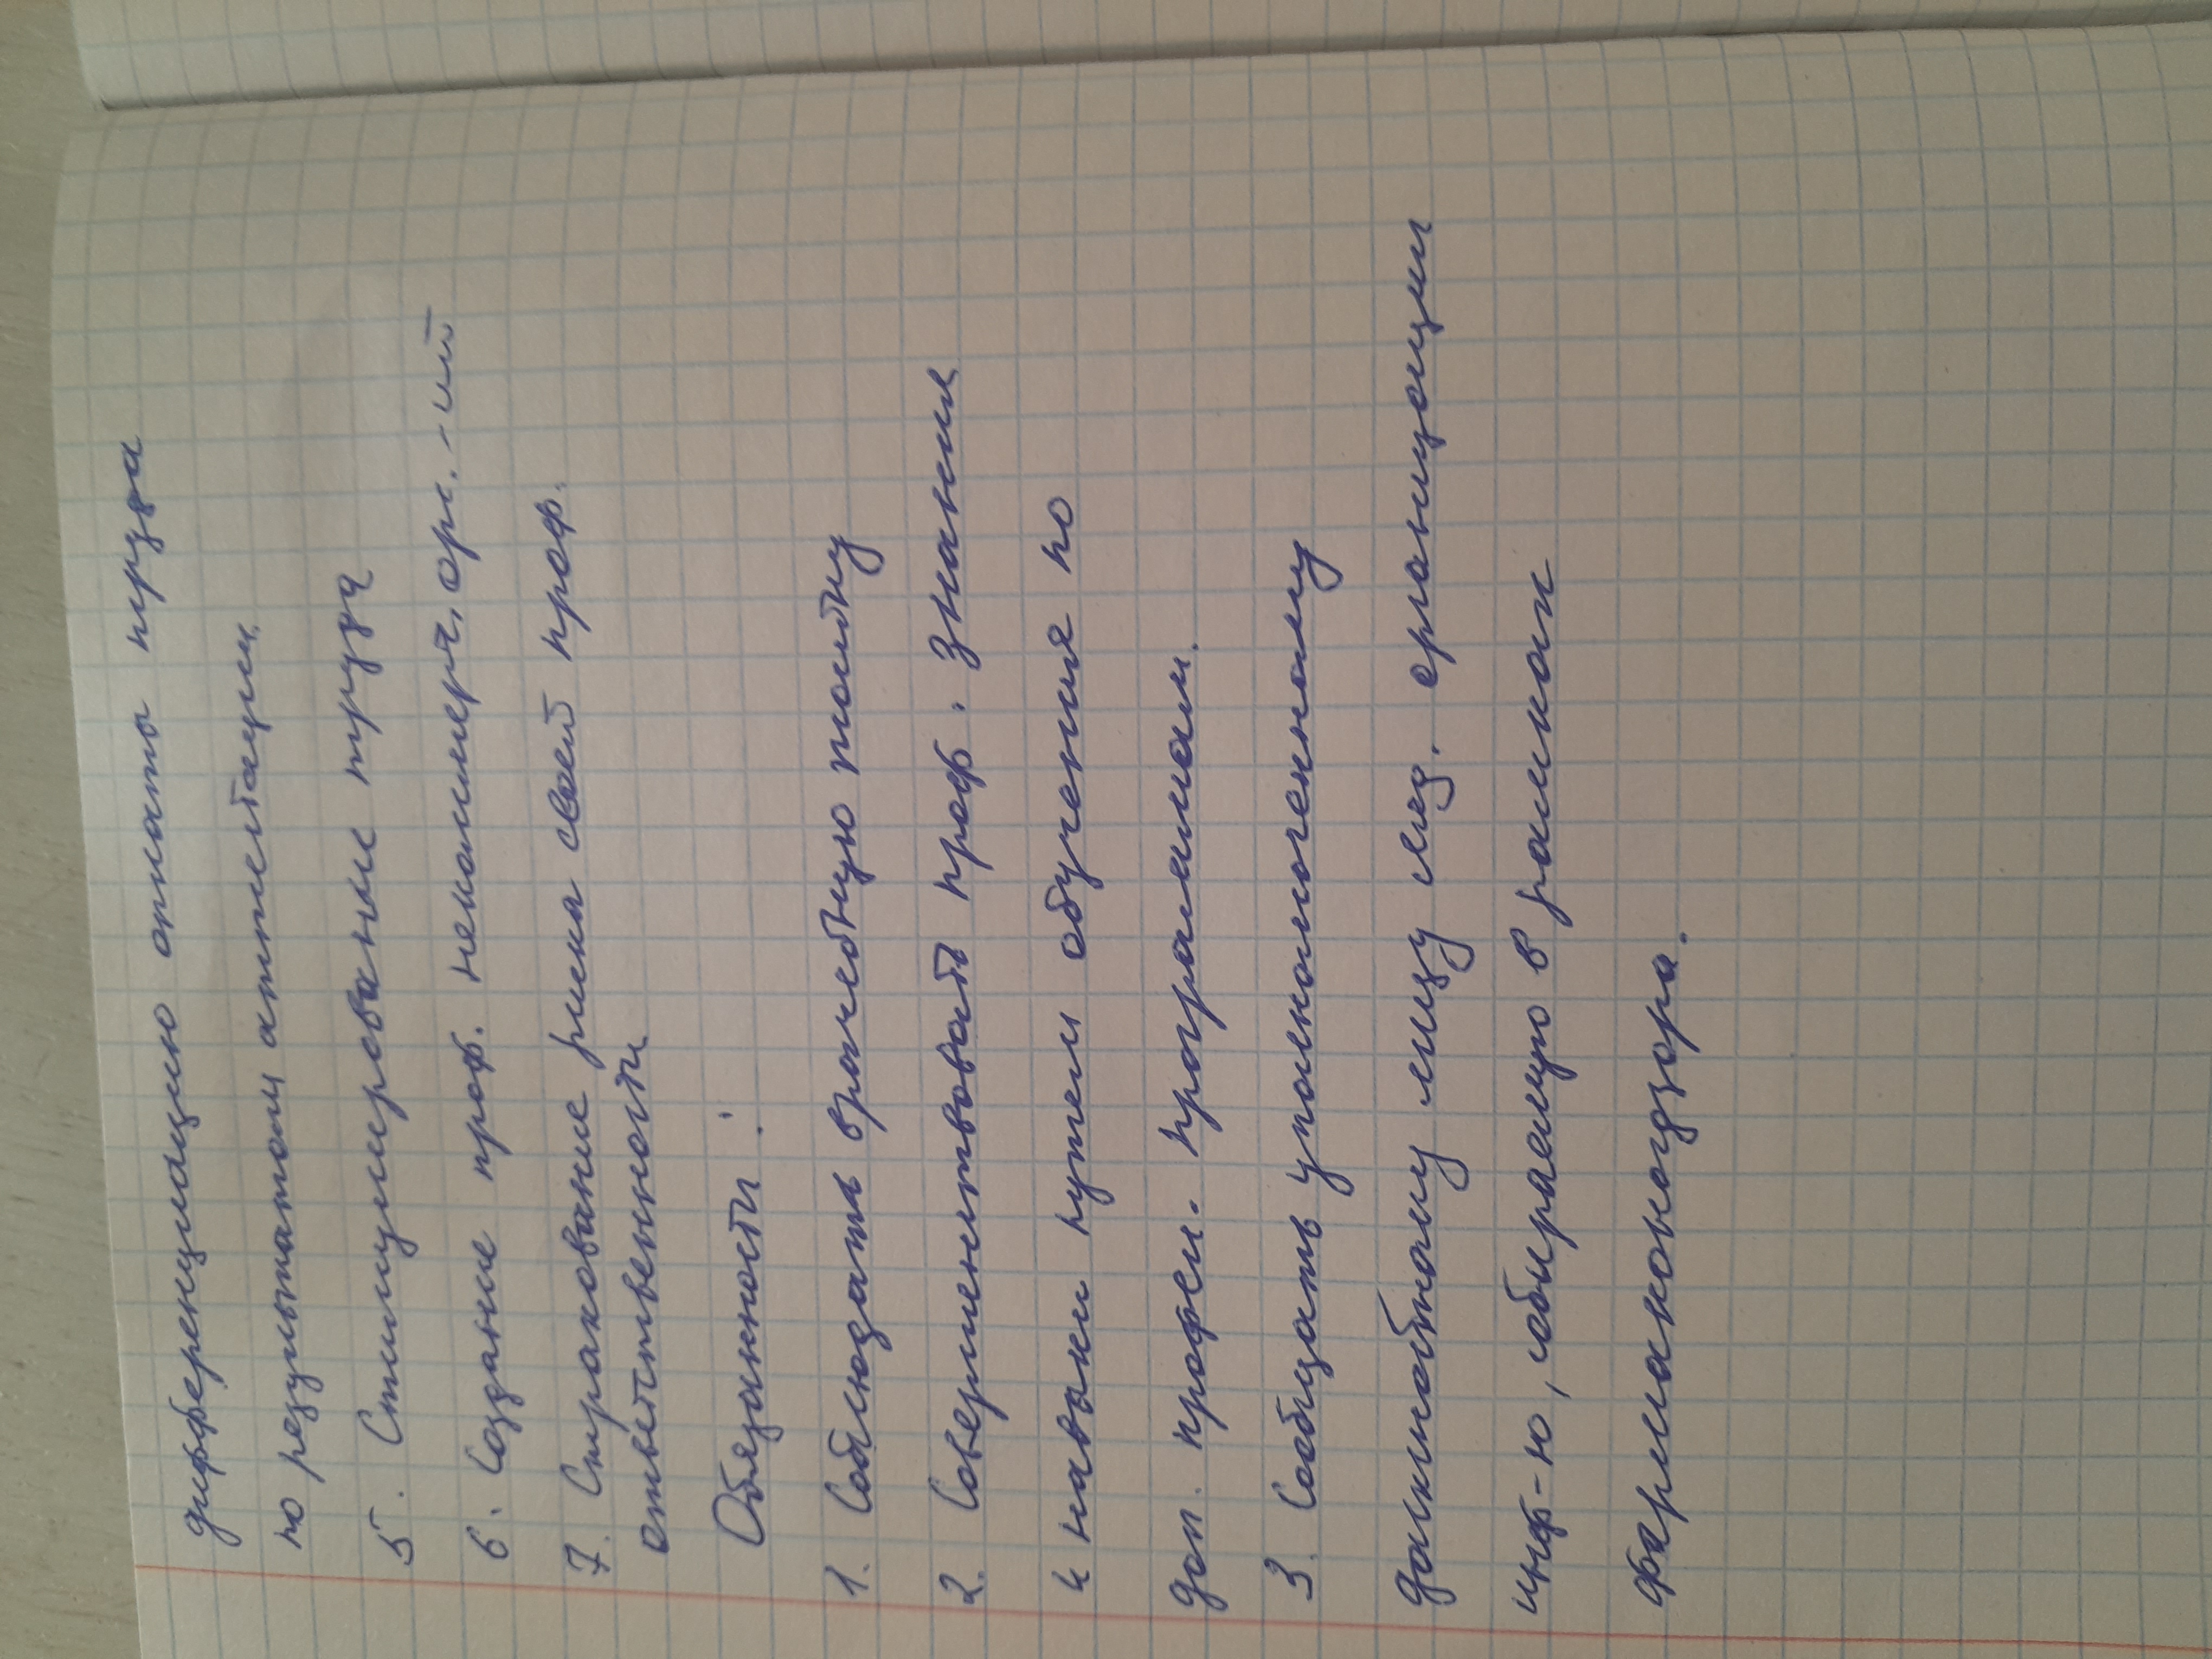 дифференциацию оплаты труда
по результатам аттестации.
5. Стимулирование труда
6. Создание проф. некоммерч. орг.-ий
7. Страхование риска своей проф.
ответственности
Обязанности:
1. Соблюдать врачебную тайну
2. Совершенствовать проф. знания
и навыки путем обучения по
доп. профес. программам.
3. Сообщать уполномоченному
должностному лицу мед. организации
инф-ю, собираемую в рамках
фармаконадзора.